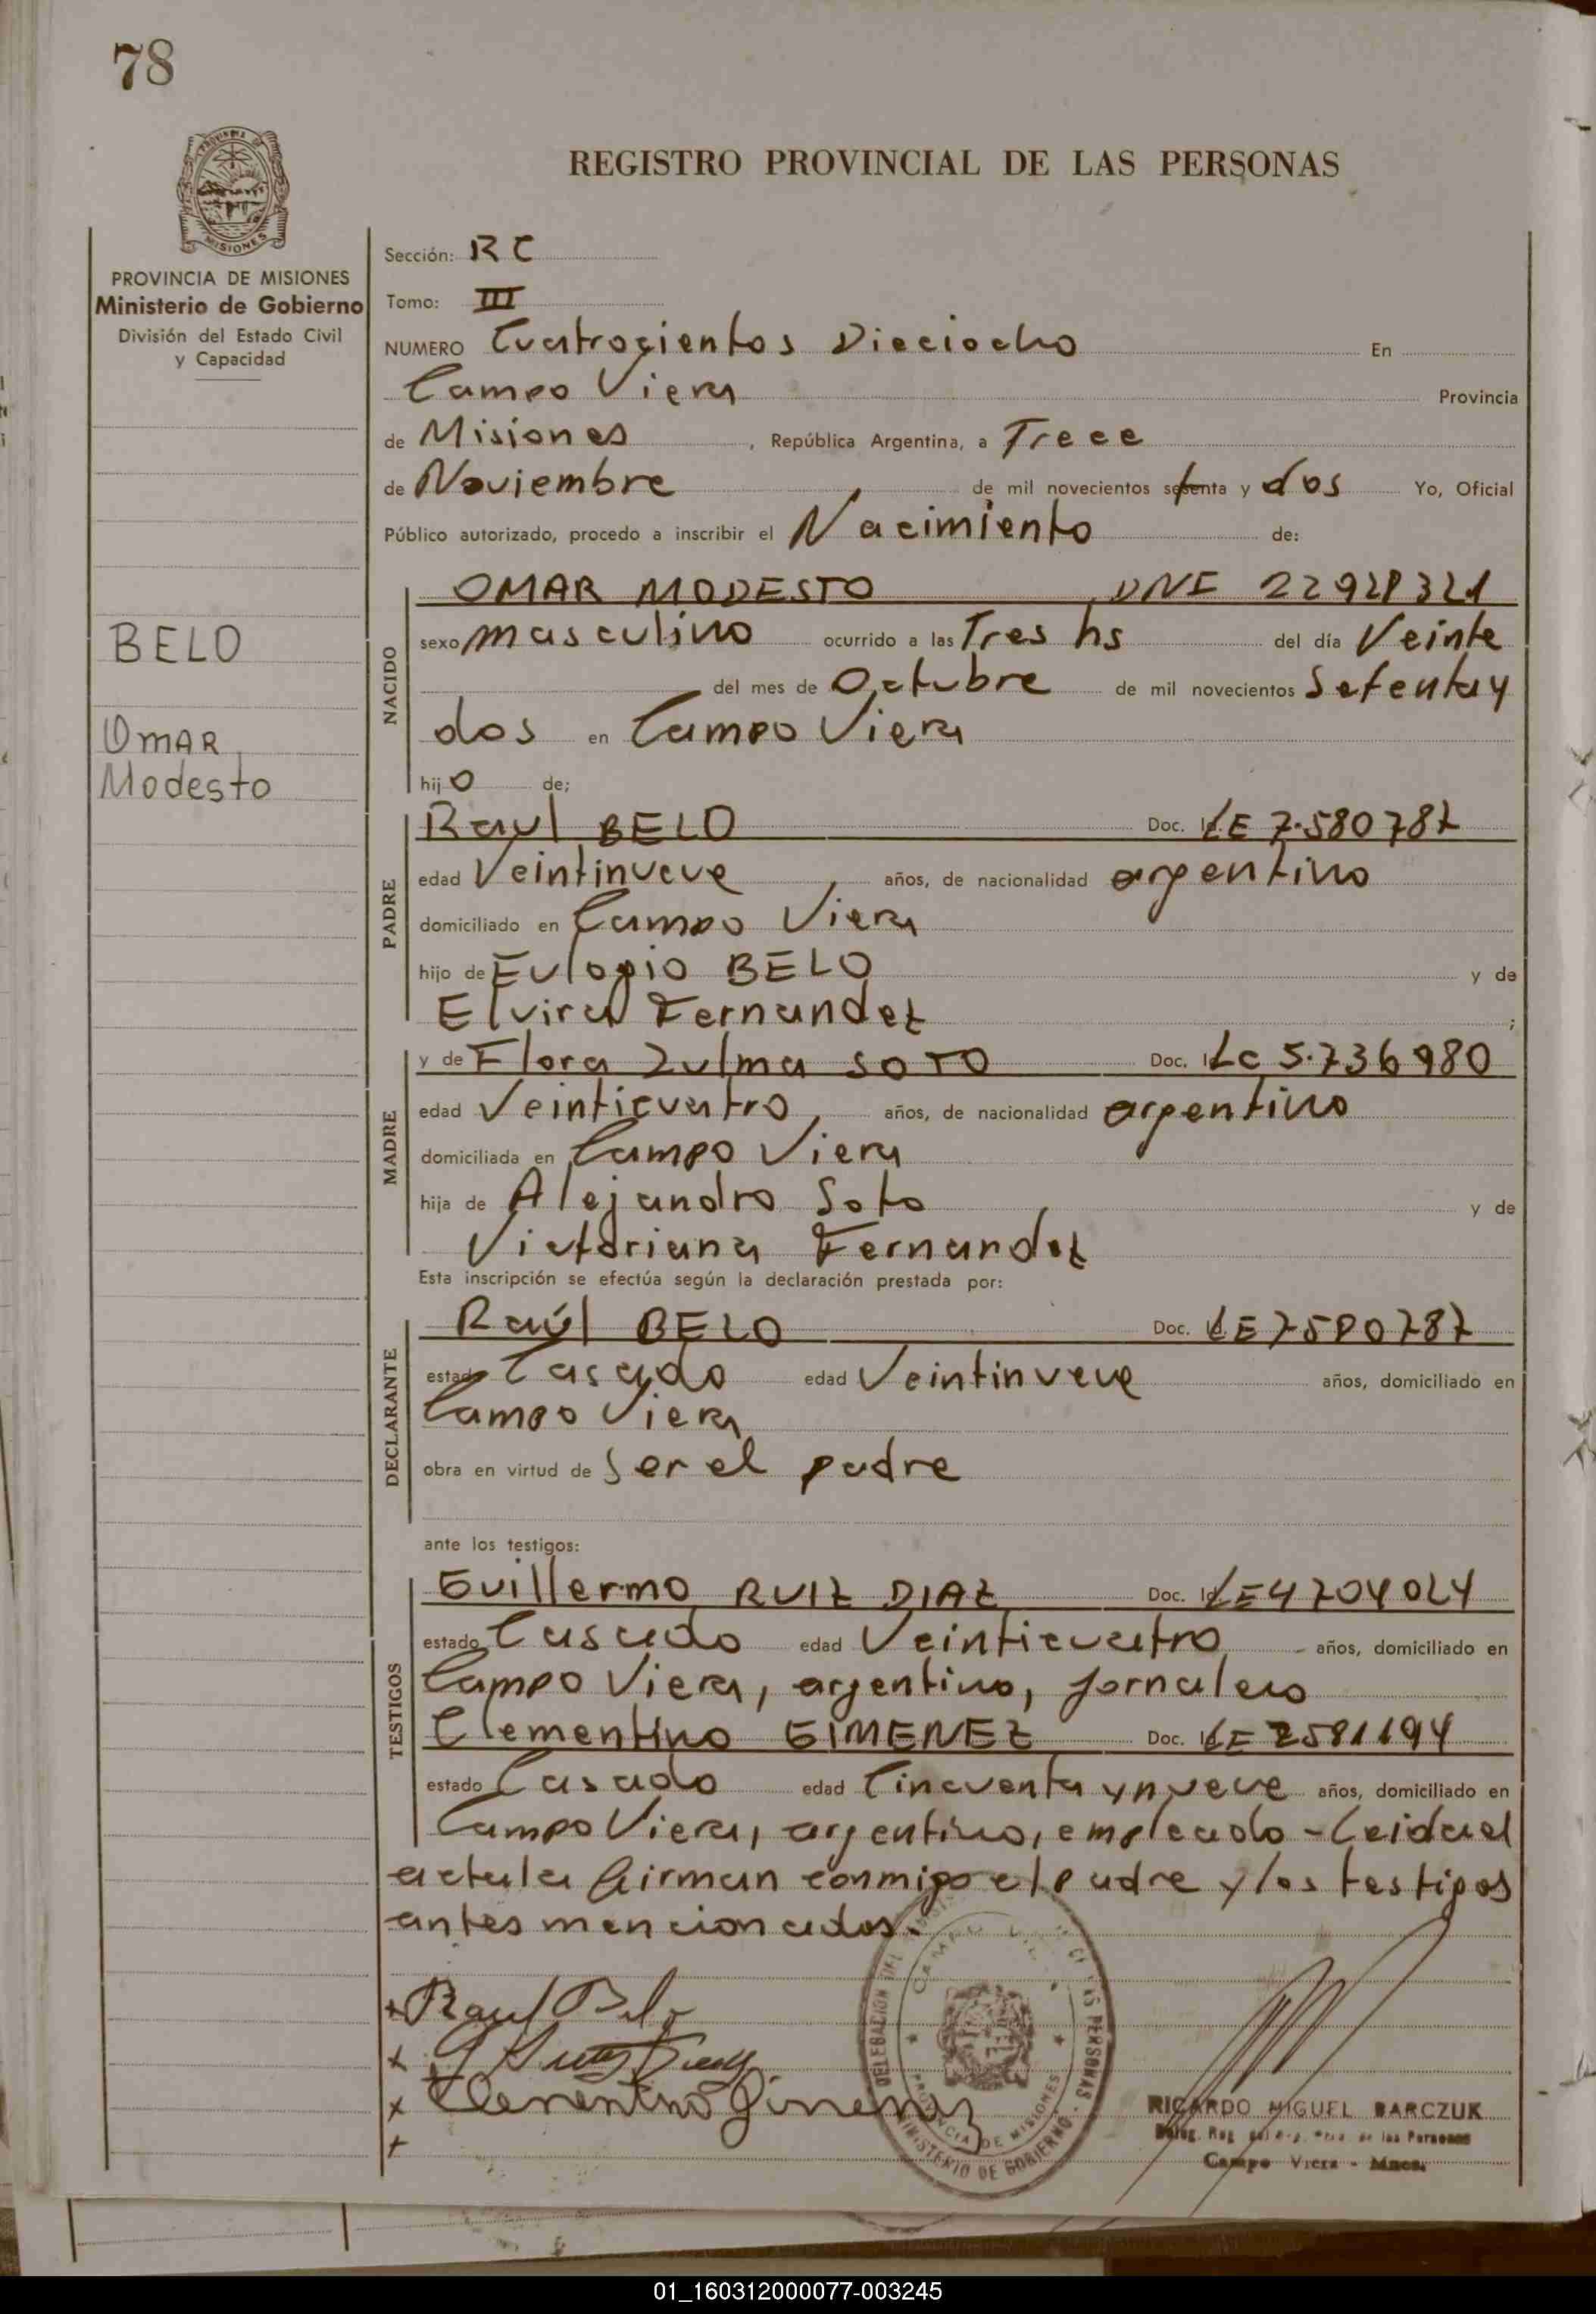 78
PROVINCIA DE MISIONES
Ministerio de Gobierno
División del Estado Civil
y Capacidad
BELO
Omar
Modesto
REGISTRO PROVINCIAL DE LAS PERSONAS
Sección: RC
Tomo: III
NUMERO Cuatrocientos Dieciocho En
Campo Viera Provincia
de Misiones, República Argentina, a Trece
de Noviembre de mil novecientos setenta y dos Yo, Oficial
Público autorizado, procedo a inscribir el Nacimiento de:
NACIDO
OMAR MODESTO DNI 22928321
sexo masculino ocurrido a las Tres hs del día Veinte
del mes de Octubre de mil novecientos Setenta y
dos en Campo Viera
hijo de;
PADRE
Raul BELO Doc. LE 7.580787
edad Veintinueve años, de nacionalidad argentino
domiciliado en Campo Viera
hijo de Eulogio BELO y de
Elvira Fernandez;
MADRE
y de Flora Zulma SOTO Doc. LC 5.736980
edad Veinticuatro años, de nacionalidad argentino
domiciliada en Campo Viera
hija de Alejandro Soto y de
Victoriana Fernandez
Esta inscripción se efectúa según la declaración prestada por:
DECLARANTE
Raúl BELO Doc. LE 7580787
estado Casado edad Veintinueve años, domiciliado en
Campo Viera
obra en virtud de ser el padre
ante los testigos:
TESTIGOS
Guillermo RUIZ DIAZ Doc. LE 4704024
estado Casado edad Veinticuatro años, domiciliado en
Campo Viera, argentino, jornalero
Clementino GIMENEZ Doc. LE 2581194
estado Casado edad Cincuenta y nueve años, domiciliado en
Campo Viera, argentino, empleado - Leida el
acta la firman conmigo el padre y los testigos
antes mencionados.
x Raul Belo
x
x Clementino Gimenez
x
DELEGACION DEL PERSONAS
PROVINCIA DE MISIONES
MINISTERIO DE GOBIERNO
RICARDO MIGUEL BARCZUK
de las Personas
Campo Viera - Mnes.
01_160312000077-003245